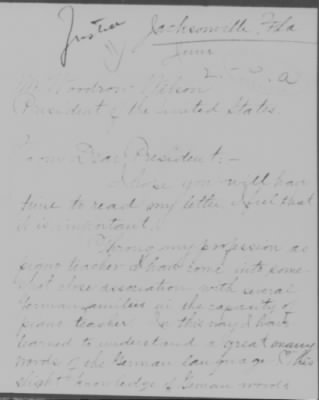 Justice
Jacksonville, Fla
June
Mr Woodrow Wilson
President of the United States
Dear President:-
I hope you will have
time to read my letter I feel that
it is important.
my profession as
piano teacher I have come into some-
what close association with several
German families in the capacity of
piano teacher In this way I have
learned to understand a great many
words of the German language This
slight knowledge of German words